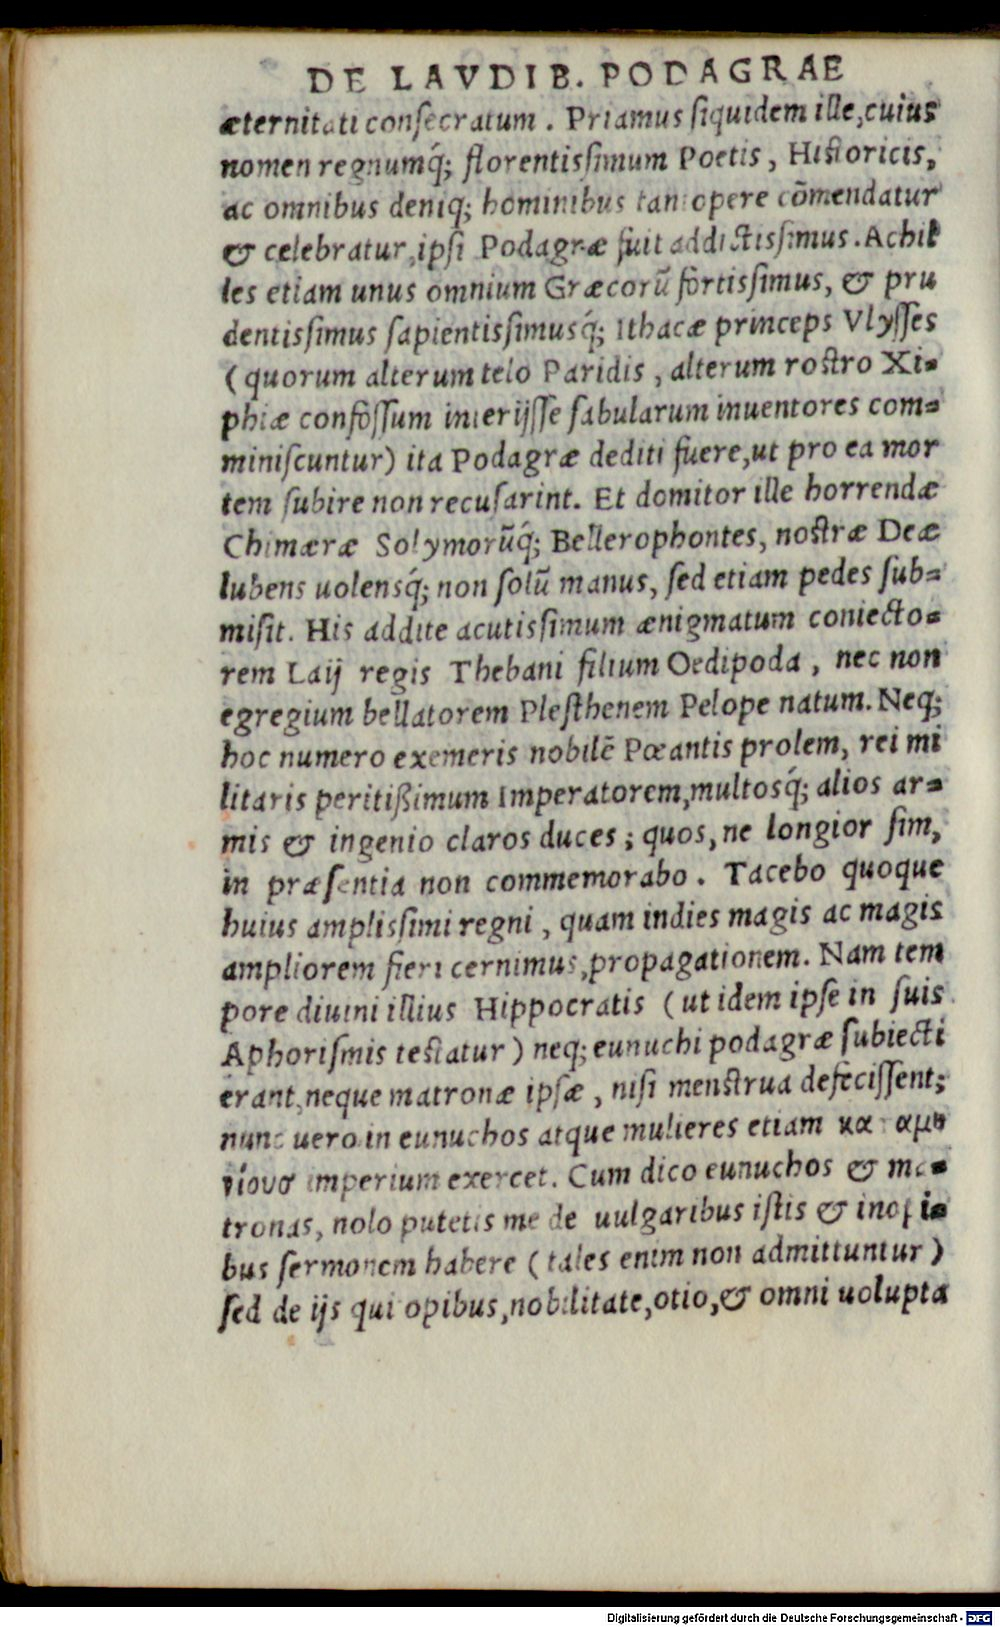 DE LAVDIB. PODAGRAE
æternitati conſecratum. Priamus ſiquidem ille, cuius
nomen regnumq́; florentisſimum Poetis, Hiſtoricis,
ac omnibus deniq; hominibus tantopere cōmendatur
& celebratur, ipſi Podagræ fuit addictisſimus. Achil
les etiam unus omnium Græcorū fortisſimus, & pru
dentisſimus ſapientisſimusq́; Ithacæ princeps Vlyſſes
(quorum alterum telo Paridis, alterum roſtro Xi=
phiæ confoſſum interijſſe fabularum inuentores com=
miniſcuntur) ita Podagræ dediti fuere, ut pro ea mor
tem ſubire non recuſarint. Et domitor ille horrendæ
Chimæræ Solymorūq́; Bellerophontes, noſtræ Deæ
lubens uolensq́; non ſolū manus, ſed etiam pedes ſub=
miſit. His addite acutisſimum ænigmatum coniecto=
rem Laij regis Thebani filium Oedipoda, nec non
egregium bellatorem Pleſthenem Pelope natum. Neq;
hoc numero exemeris nobilē Pœantis prolem, rei mi
litaris peritißimum Imperatorem, multosq́; alios ar=
mis & ingenio claros duces; quos, ne longior ſim,
in præſentia non commemorabo. Tacebo quoque
huius amplisſimi regni, quam indies magis ac magis
ampliorem fieri cernimus, propagationem. Nam tem
pore diuini illius Hippocratis (ut idem ipſe in ſuis
Aphoriſmis teſtatur) neq; eunuchi podagræ ſubiecti
erant, neque matronæ ipſæ, niſi menſtrua defeciſſent;
nunc uero in eunuchos atque mulieres etiam
imperium exercet. Cum dico eunuchos & ma=
tronas, nolo putetis me de uulgaribus iſtis & inopi=
bus ſermonem habere (tales enim non admittuntur)
ſed de ijs qui opibus, nobilitate, otio, & omni uolupta
Digitalisierung gefördert durch die Deutsche Forschungsgemeinschaft - DFG